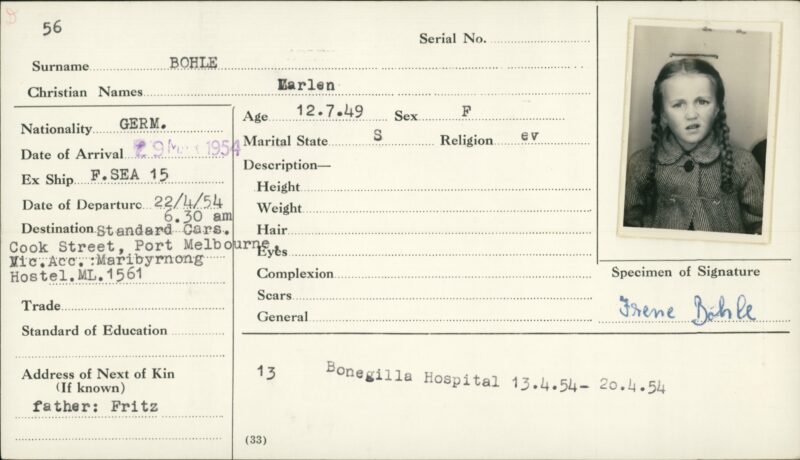 56
Serial No.
Surname BOHLE
Christian Names Marlen
Nationality GERM.
Date of Arrival 29 1954
Ex Ship F.SEA 15
Date of Departure 22/4/54
6.30 am
Destination Standard Cars.
Cook Street, Port Melbourne,
Vic.Acc.:Maribyrnong
Hostel.ML.1561
Trade
Standard of Education
Address of Next of Kin
(If known)
father: Fritz
Age 12.7.49 Sex F
Marital State S Religion ev
Description—
Height
Weight
Hair
Eyes
Complexion
Scars
General
Specimen of Signature
Irene Böhle
13 Bonegilla Hospital 13.4.54- 20.4.54
(33)